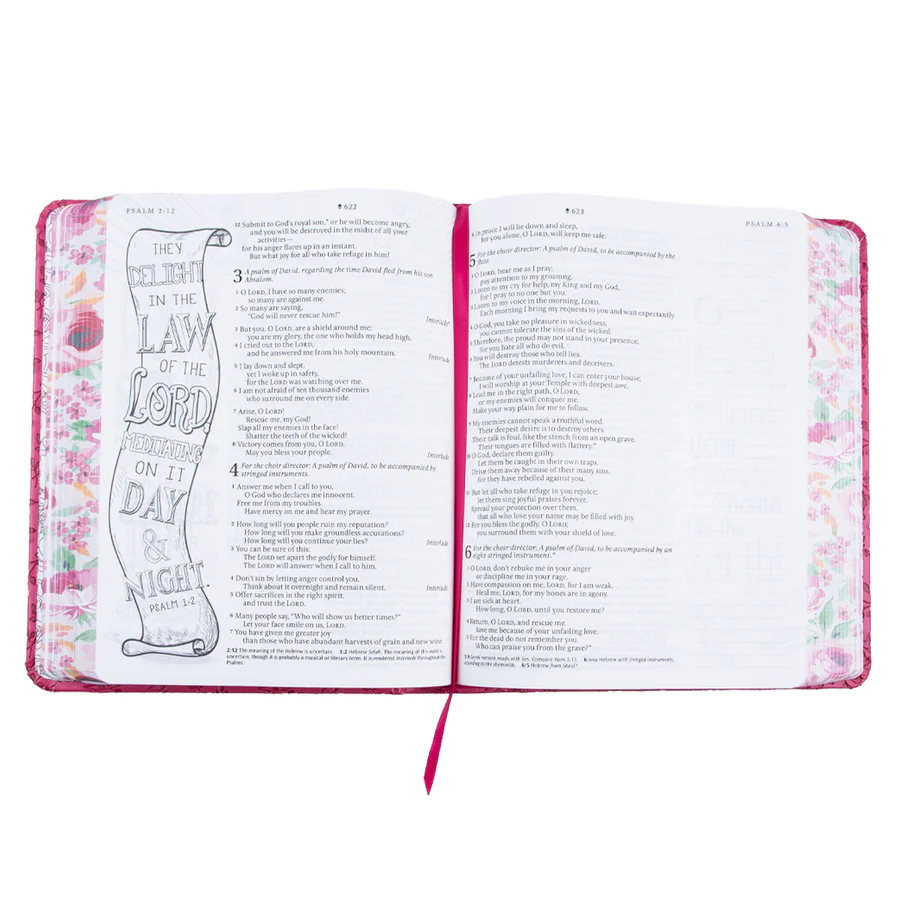 PSALM 2:12
622
THEY
DELIGHT
IN THE
LAW
OF THE
LORD,
MEDITATING
ON IT
DAY
&
NIGHT.
PSALM 1:2
12 Submit to God's royal son,* or he will become angry,
and you will be destroyed in the midst of all your
activities—
for his anger flares up in an instant.
But what joy for all who take refuge in him!
3 A psalm of David, regarding the time David fled from his son
Absalom.
1 O LORD, I have so many enemies;
so many are against me.
2 So many are saying,
"God will never rescue him!"
Interlude*
3 But you, O LORD, are a shield around me;
you are my glory, the one who holds my head high.
4 I cried out to the LORD,
and he answered me from his holy mountain.
Interlude
5 I lay down and slept,
yet I woke up in safety,
for the LORD was watching over me.
6 I am not afraid of ten thousand enemies
who surround me on every side.
7 Arise, O LORD!
Rescue me, my God!
Slap all my enemies in the face!
Shatter the teeth of the wicked!
8 Victory comes from you, O LORD.
May you bless your people.
Interlude
4 For the choir director: A psalm of David, to be accompanied by
stringed instruments.
1 Answer me when I call to you,
O God who declares me innocent.
Free me from my troubles.
Have mercy on me and hear my prayer.
2 How long will you people ruin my reputation?
How long will you make groundless accusations?
How long will you continue your lies?
Interlude
3 You can be sure of this:
The LORD set apart the godly for himself.
The LORD will answer when I call to him.
4 Don't sin by letting anger control you.
Think about it overnight and remain silent.
Interlude
5 Offer sacrifices in the right spirit,
and trust the LORD.
6 Many people say, "Who will show us better times?"
Let your face smile on us, LORD.
7 You have given me greater joy
than those who have abundant harvests of grain and new wine.
2:12 The meaning of the Hebrew is uncertain. 3:2 Hebrew Selah. The meaning of this word is
uncertain, though it is probably a musical or literary term. It is rendered Interlude throughout the
Psalms.
623
PSALM 6:5
8 In peace I will lie down and sleep,
for you alone, O LORD, will keep me safe.
5 For the choir director: A psalm of David, to be accompanied by the
flute.
1 O LORD, hear me as I pray;
pay attention to my groaning.
2 Listen to my cry for help, my King and my God,
for I pray to no one but you.
3 Listen to my voice in the morning, LORD.
Each morning I bring my requests to you and wait expectantly.
4 O God, you take no pleasure in wickedness;
you cannot tolerate the sins of the wicked.
5 Therefore, the proud may not stand in your presence,
for you hate all who do evil.
6 You will destroy those who tell lies.
The LORD detests murderers and deceivers.
7 Because of your unfailing love, I can enter your house;
I will worship at your Temple with deepest awe.
8 Lead me in the right path, O LORD,
or my enemies will conquer me.
Make your way plain for me to follow.
9 My enemies cannot speak a truthful word.
Their deepest desire is to destroy others.
Their talk is foul, like the stench from an open grave.
Their tongues are filled with flattery.*
10 O God, declare them guilty.
Let them be caught in their own traps.
Drive them away because of their many sins,
for they have rebelled against you.
11 But let all who take refuge in you rejoice;
let them sing joyful praises forever.
Spread your protection over them,
that all who love your name may be filled with joy.
12 For you bless the godly, O LORD;
you surround them with your shield of love.
6 For the choir director: A psalm of David, to be accompanied by an
eight-stringed instrument.*
1 O LORD, don't rebuke me in your anger
or discipline me in your rage.
2 Have compassion on me, LORD, for I am weak.
Heal me, LORD, for my bones are in agony.
3 I am sick at heart.
How long, O LORD, until you restore me?
4 Return, O LORD, and rescue me.
Save me because of your unfailing love.
5 For the dead do not remember you.
Who can praise you from the grave?*
5:9 Greek version reads with lies. Compare Rom 3:13. 6:title Hebrew with stringed instruments;
according to the sheminith. 6:5 Hebrew from Sheol?